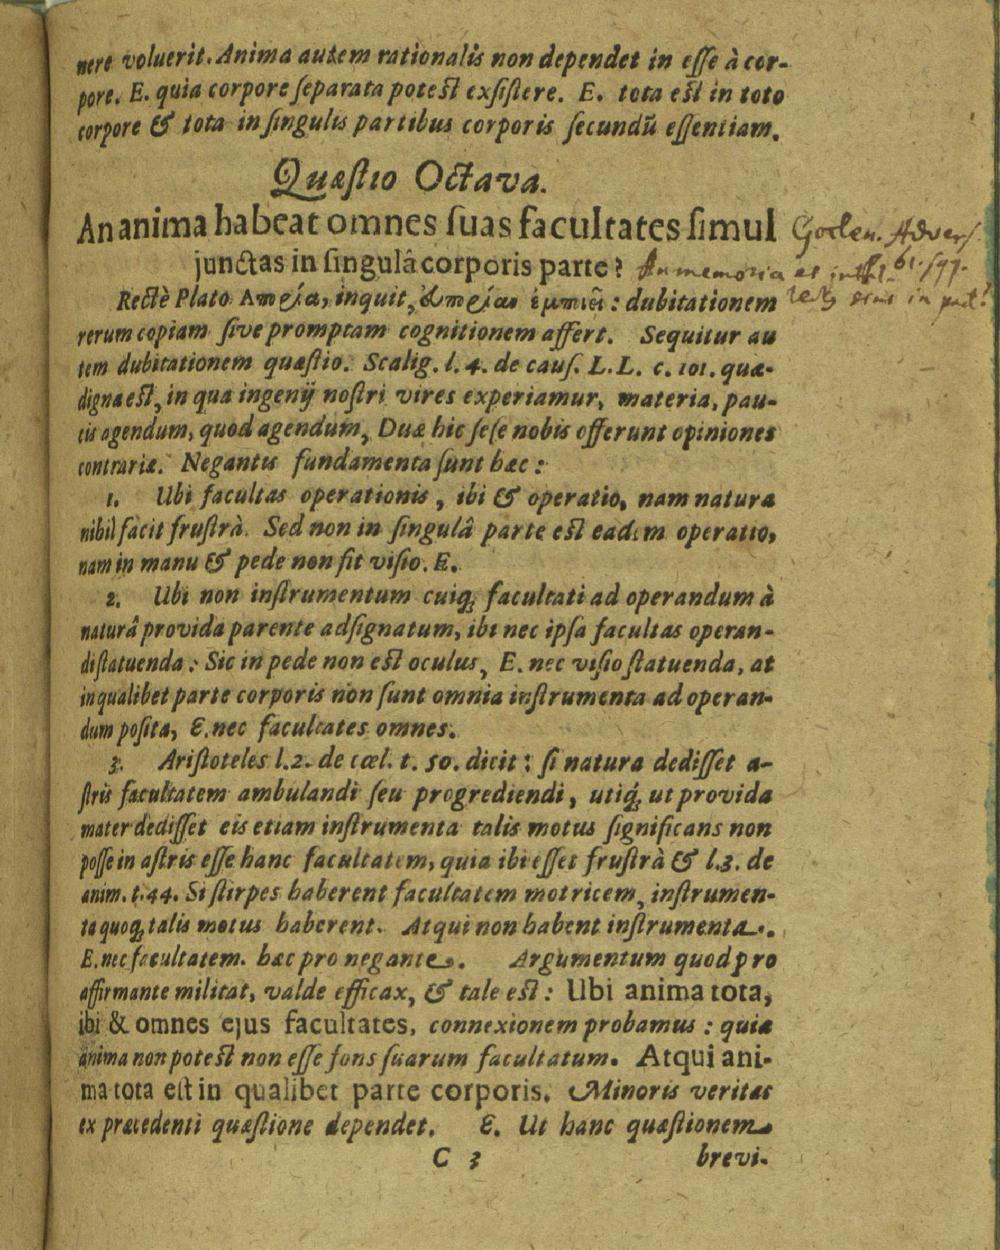 nere voluerit. Anima autem rationalis non dependet in esse à cor-
pore. E. quia corpore separata potest exsistere. E. tota est in toto
corpore & tota in singulis partibus corporis secundũ essentiam.
Quæstio Octava.
An anima habeat omnes suas facultates simul
junctas in singulâ corporis parte?
Goclen. Advers.
An memoria et
Rectè Plato inquit, dubitationem
rerum copiam sive promptam cognitionem affert. Sequitur au
tem dubitationem quæstio. Scalig. l. 4. de caus. L.L. c. 101. quæ-
digna est, in qua ingenij nostri vires experiamur, materia, pau-
cis agendum, quod agendum, Duæ hic sese nobis offerunt opiniones
contrariæ. Negantis fundamenta sunt hæc:
1. Ubi facultas operationis, ibi & operatio, nam natura
nihil facit frustrà. Sed non in singulâ parte est eadem operatio,
nam in manu & pede non fit visio. E.
2. Ubi non instrumentum cuiq; facultati ad operandum à
naturâ provida parente adsignatum, ibi nec ipsa facultas operan-
di statuenda: Sic in pede non est oculus, E. nec visio statuenda, at
in qualibet parte corporis non sunt omnia instrumenta ad operan-
dum posita, E. nec facultates omnes.
3. Aristoteles l.2. de cœl. t. 50. dicit: si natura dedisset a-
stris facultatem ambulandi seu progrediendi, utiq; ut provida
mater dedisset eis etiam instrumenta talis motus significans non
posse in astris esse hanc facultatem, quia ibi esset frustrà & l.3. de
anim. t.44. Si stirpes haberent facultatem motricem, instrumen-
ta quoq; talis motus haberent. Atqui non habent instrumenta.
E. nec facultatem. hæc pro negante. Argumentum quod pro
affirmante militat, valde efficax, & tale est: Ubi anima tota,
ibi & omnes ejus facultates, connexionem probamus: quia
anima non potest non esse fons suarum facultatum. Atqui ani-
ma tota est in qualibet parte corporis. Minoris veritas
ex præcedenti quæstione dependet. E. Ut hanc quæstionem
C 3 brevi-